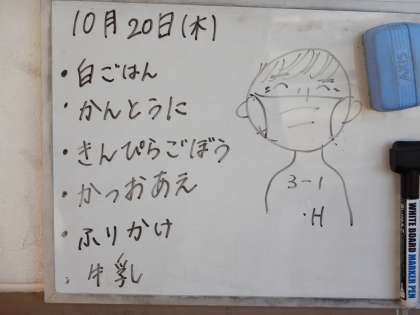 10月20日(木)
・白ごはん
・かんとうに
・きんぴらごぼう
・かつおあえ
・ふりかけ
・牛乳
3-1
・H
WHITE BOARD MARKER PEN